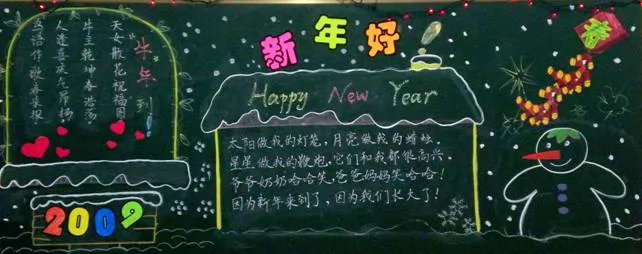 新年好！
牛年到！
天女散花祝福图
牛至乾坤春浩荡
人逢喜庆气昂扬
Happy New Year
太阳做我的灯笼，月亮做我的蜡烛，
星星做我的鞭炮，它们和我都很高兴，
爷爷奶奶哈哈笑，爸爸妈妈笑哈哈！
因为新年来到了，因为我们长大了！
春
2009